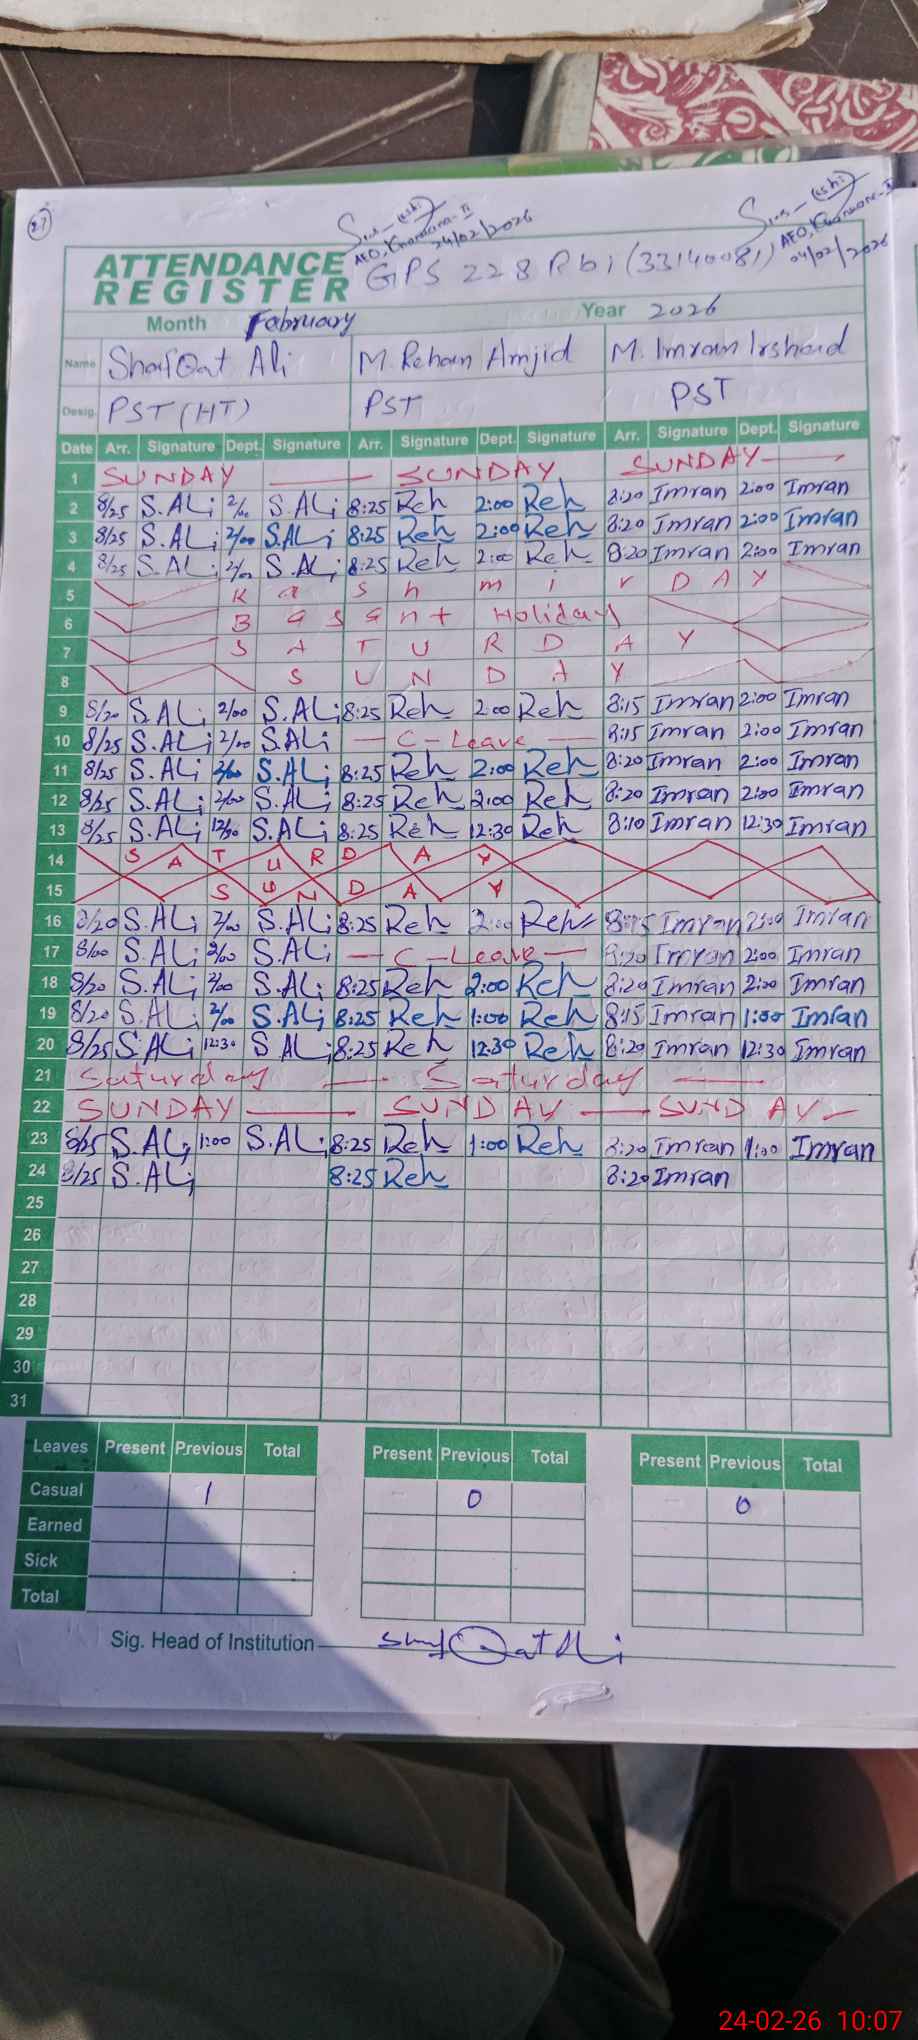 27
AEO, Khanuana-II
24/02/2026
AEO, Khanuana-II
04/02/2026
ATTENDANCE
REGISTER
GPS 228 Rbi (33140081)
Month February Year 2026
Name ShafQat Ali M. Rehan Amjid M. Imran Irshad
Desig. PST (HT) PST PST
Date Arr. Signature Dept. Signature Arr. Signature Dept. Signature Arr. Signature Dept. Signature
1 SUNDAY SUNDAY SUNDAY
2 8/25 S.ALi 2/00 S.ALi 8:25 Reh 2:00 Reh 8:20 Imran 2:00 Imran
3 8/25 S.ALi 2/00 S.ALi 8:25 Reh 2:00 Reh 8:20 Imran 2:00 Imran
4 8/25 S.ALi 2/00 S.ALi 8:25 Reh 2:00 Reh 8:20 Imran 2:00 Imran
5 Kashmir DAY
6 Basant Holiday
7 SATURDAY
8 SUNDAY
9 8/20 S.ALi 2/00 S.ALi 8:25 Reh 2:00 Reh 8:15 Imran 2:00 Imran
10 8/25 S.ALi 2/00 S.ALi C-Leave 8:15 Imran 2:00 Imran
11 8/25 S.ALi 2/00 S.ALi 8:25 Reh 2:00 Reh 8:20 Imran 2:00 Imran
12 8/25 S.ALi 2/00 S.ALi 8:25 Reh 2:00 Reh 8:20 Imran 2:00 Imran
13 8/25 S.ALi 12/30 S.ALi 8:25 Reh 12:30 Reh 8:10 Imran 12:30 Imran
14 SATURDAY
15 SUNDAY
16 8/20 S.ALi 2/00 S.ALi 8:25 Reh 2:00 Reh 8:15 Imran 2:00 Imran
17 8/00 S.ALi 2/00 S.ALi C-Leave 8:20 Imran 2:00 Imran
18 8/20 S.ALi 2/00 S.ALi 8:25 Reh 2:00 Reh 8:20 Imran 2:00 Imran
19 8/20 S.ALi 2/00 S.ALi 8:25 Reh 1:00 Reh 8:15 Imran 1:00 Imran
20 8/25 S.ALi 12:30 S.ALi 8:25 Reh 12:30 Reh 8:20 Imran 12:30 Imran
21 Saturday Saturday
22 SUNDAY SUNDAY SUNDAY
23 8/25 S.ALi 1:00 S.ALi 8:25 Reh 1:00 Reh 8:20 Imran 1:00 Imran
24 8/25 S.ALi 8:25 Reh 8:20 Imran
25
26
27
28
29
30
31
Leaves Present Previous Total Present Previous Total Present Previous Total
Casual 1 0 0
Earned
Sick
Total
Sig. Head of Institution ShafQat Ali
24-02-26 10:07